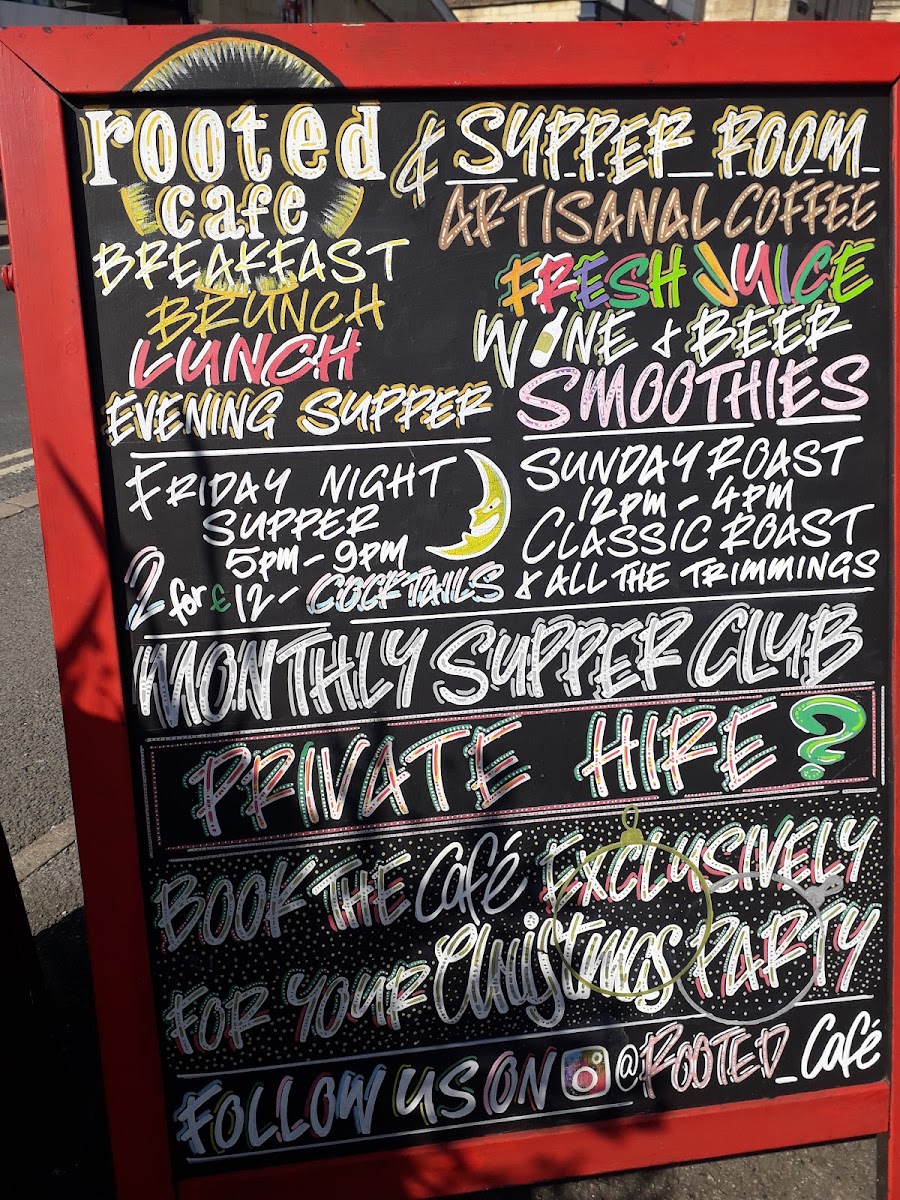 rooted
cafe
& SUPPER ROOM
BREAKFAST
BRUNCH
LUNCH
EVENING SUPPER
ARTISANAL COFFEE
FRESH JUICE
WINE & BEER
SMOOTHIES
FRIDAY NIGHT
SUPPER
5pm - 9pm
2 for £12 - COCKTAILS
SUNDAY ROAST
12pm - 4pm
CLASSIC ROAST
& ALL THE TRIMMINGS
MONTHLY SUPPER CLUB
PRIVATE HIRE?
BOOK THE Café EXCLUSIVELY
FOR YOUR Christmas PARTY
FOLLOW US ON @ROOTED_Café